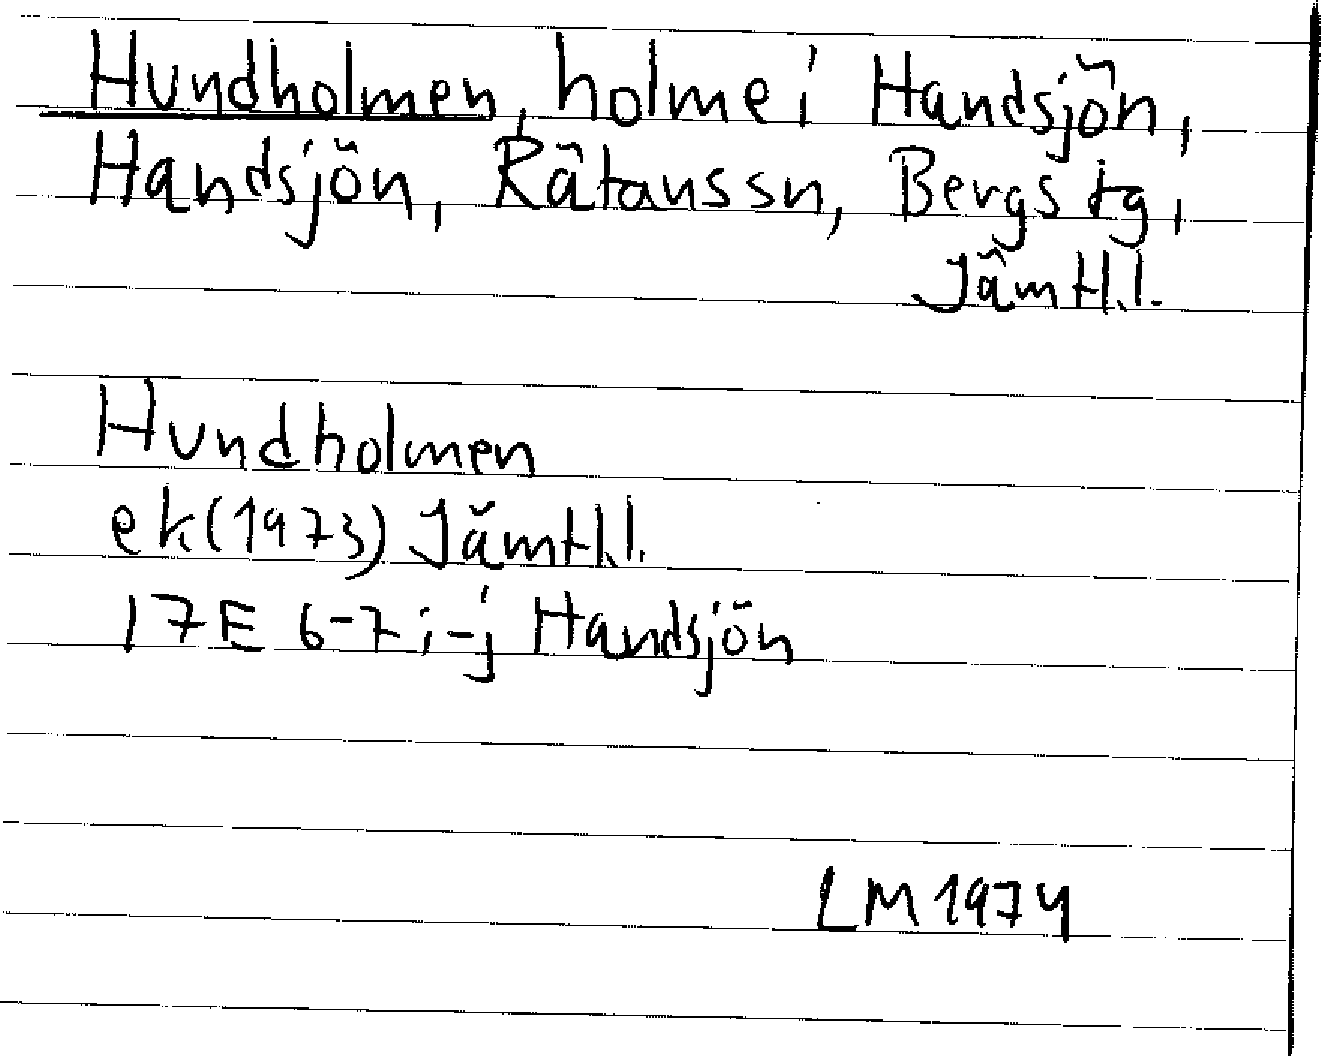 Hundholmen, holme i Handsjön,
Handsjön, Rätanssn, Bergs tg,
Jämtl.l.
Hundholmen
ek (1973) Jämtl.l.
17E 6-7 i-j Handsjön
LM 1974